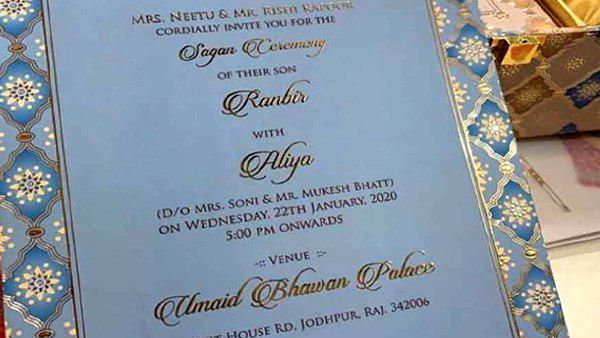 MRS. NEETU & MR. RISHI KAPOOR
CORDIALLY INVITE YOU FOR THE
Sagan Ceremony
OF THEIR SON
Ranbir
WITH
Aliya
(D/O MRS. SONI & MR. MUKESH BHATT)
ON WEDNESDAY, 22ND JANUARY, 2020
5:00 PM ONWARDS
-:: VENUE ::-
Umaid Bhawan Palace
HOUSE RD, JODHPUR, RAJ. 342006